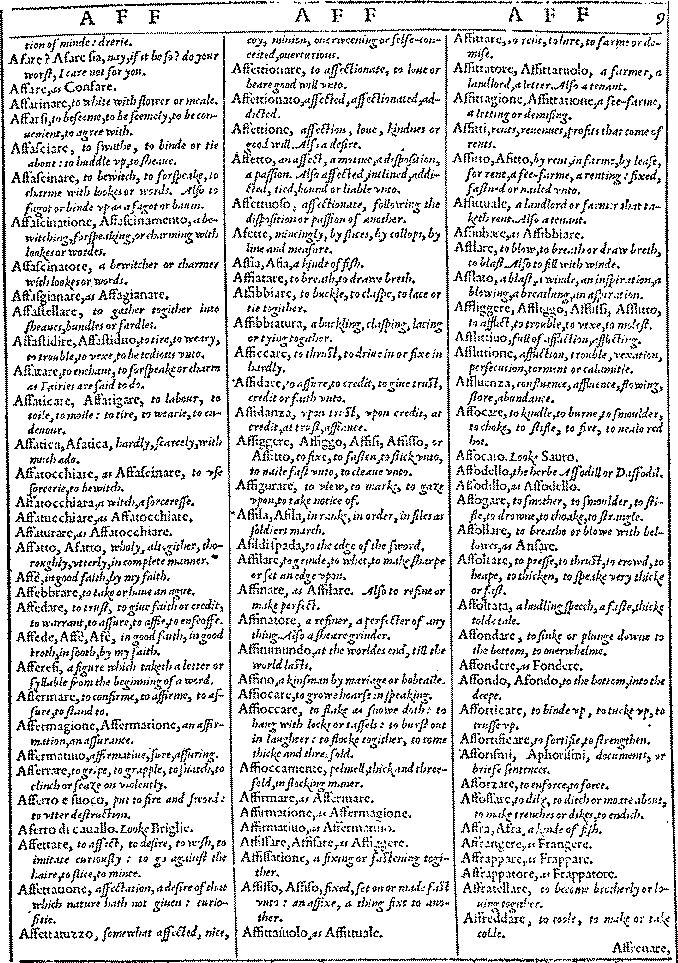 A F F A F F A F F 9
tion of minde: drerie.
Afare? Afare sia, nay, if it be so? do your
worst, I care not for you.
Affare, as Confare.
Affarinare, to white with flower or meale.
Affarsi, to beseeme, to be seemely, to be con-
uenient, to agree with.
Affasciare, to swathe, to binde or tie
aboue: to huddle vp, to sheaue.
Affascinare, to bewitch, to forspeake, to
charme with lookes or words. Also to
fagot or binde vp as a fagot or bauin.
Affascinatione, Affascinamento, a be-
witching, forspeaking, or charming with
lookes or wordes.
Affascinatore, a bewitcher or charmer
with lookes or words.
Affasgianare, as Affagianare.
Affastellare, to gather together into
sheaues, bundles or fardles.
Affastidire, Affastiduo, to tire, to weary,
to trouble, to vexe, to be tedious vnto.
Affatare, to enchant, to forspeake or charm
as Fairies are said to do.
Affaticare, Affatigare, to labour, to
toile, to moile: to tire, to wearie, to en-
deuour.
Affatica, Afatica, hardly, scarcely, with
much ado.
Affatocchiare, as Affascinare, to vse
sorcerie, to bewitch.
Affatocchiara, a witch, a sorceresse.
Affatucchiare, as Affatocchiare.
Affaturare, as Affatocchiare.
Affatto, Afatto, wholy, altogither, tho-
roughly, vtterly, in complete manner.
Affè, in good faith, by my faith.
Affebbrare, to take or haue an ague.
Affedare, to trust, to giue faith or credit,
to warrant, to assure, to affie, to enfeoffe.
Affede, Affè, Afè, in good faith, in good
troth, in sooth, by my faith.
Afferesi, a figure which taketh a letter or
syllable from the beginning of a word.
Affermare, to confirme, to affirme, to as-
sure, to stand to.
Affermagione, Affermatione, an affir-
mation, an assurance.
Affermatiuo, affirmatiue, sure, assuring.
Afferrare, to gripe, to grapple, to snatch, to
clinch or seaze on violently.
Afferro e fuoco, put to fire and sword:
to vtter destruction.
Aferro di cauallo. Looke Briglie.
Affettare, to affect, to desire, to wish, to
imitate curiously: to go against the
haire, to slice, to mince.
Affettatione, affectation, a desire of that
which nature hath not giuen: curio-
sitie.
Affettatuzzo, somewhat affected, nice,
coy, minion, ouerweening or selfe-con-
ceited, ouercurious.
Affettionare, to affectionate, to loue or
beare good will vnto.
Affettionato, affected, affectionated, ad-
dicted.
Affettione, affection, loue, kindnes or
good will. Also a desire.
Affetto, an affect, a motiue, a disposition,
a passion. Also affected, inclined, addi-
cted, tied, bound or liable vnto.
Affettuoso, affectionate, following the
disposition or passion of another.
Afette, mincingly, by slices, by collops, by
line and measure.
Affia, Afia, a kinde of fish.
Affiatare, to breath, to drawe breth.
Affibbiare, to buckle, to claspe, to lace or
tie together.
Affibbiatura, a buckling, clasping, lacing
or tying together.
Afficcare, to thrust, to driue in or fixe in
hardly.
Affidare, to assure, to credit, to giue trust,
credit or faith vnto.
Affidanza, vpon trust, vpon credit, at
credit, at trust, affiance.
Affiggere, Affiggo, Affisi, Affisso, or
Affitto, to fixe, to fasten, to sticke vnto,
to naile fast vnto, to cleaue vnto.
Affigurare, to view, to marke, to gaze
vpon, to take notice of.
Affila, Afila, in ranke, in order, in files as
soldiers march.
Afil di spada, to the edge of the sword.
Affilare, to grinde, to whet, to make sharpe
or set an edge vpon.
Affinare, as Affilare. Also to refine or
make perfect.
Affinatore, a refiner, a perfecter of any
thing. Also a sheare grinder.
Affinimundo, at the worldes end, till the
world lasts.
Affino, a kinsman by mariage or bobtaile.
Affiocare, to growe hoarse in speaking.
Affioccare, to flake as snowe doth: to
hang with locks or tassels: to burst out
in laughter: to flocke together, to come
thicke and threefold.
Affioccamente, pelmell, thick and three-
fold, in flocking maner.
Affirmare, as Affermare.
Affirmatione, as Affermagione.
Affirmatiuo, as Affermatiuo.
Affissare, Affisare, as Affiggere.
Affissatione, a fixing or fastening togi-
ther.
Affisso, Affiso, fixed, set on or made fast
vnto: an affixe, a thing fixt to ano-
ther.
Affittaiuolo, as Affittuale.
Affittare, to rent, to lure, to farme or de-
mise.
Affittatore, Affittatuolo, a farmer, a
landlord, a letter. Also a tenant.
Affittagione, Affittatione, a fee-farme,
a letting or demising.
Affitti, rents, reuenues, profits that come of
rents.
Affitto, Afitto, by rent, in farme, by lease,
for rent, a fee-farme, a renting: fixed,
fastned or nailed vnto.
Affittuale, a landlord or farmer that ta-
keth rent. Also a tenant.
Affiubare, as Affibbiare.
Afflare, to blow, to breath or draw breth,
to blast. Also to fill with winde.
Afflato, a blast, a winde, an inspiration, a
blowing, a breathing, an aspiration.
Affliggere, Affliggo, Afflissi, Afflitto,
to afflict, to trouble, to vexe, to molest.
Afflittiuo, full of affliction, afflicting.
Afflittione, affliction, trouble, vexation,
persecution, torment or calamitie.
Affluenza, confluence, affluence, flowing,
store, abundance.
Affocare, to kindle, to burne, to smoulder,
to choke, to stifle, to fire, to neale red
hot.
Affocato. Looke Sauro.
Affodello, the herbe Affodill or Daffodil.
Affodillo, as Affodello.
Affogare, to smother, to smoulder, to sti-
fle, to drowne, to choake, to strangle.
Affollare, to breathe or blowe with bel-
lowes, as Ansare.
Affoltare, to presse, to thrust, to crowd, to
heape, to thicken, to speake very thicke
or fast.
Affoltata, a hudling speech, a faste, thicke
tolde tale.
Affondare, to sinke or plunge downe to
the bottom, to overwhelme.
Affondere, as Fondere.
Affondo, Afondo, to the bottom, into the
deepe.
Afforticare, to binde vp, to tucke vp, to
trusse vp.
Affortificare, to fortifie, to strengthen.
Afforismi, Aphorismi, documents, or
briefe sentences.
Afforzare, to enforce, to force.
Affossare, to dike, to ditch or moate about,
to make trenches or dikes, to endich.
Affra, Afra, a kinde of fish.
Affrangere, as Frangere.
Affrappare, as Frappare.
Affrappatore, as Frappatore.
Affratellare, to become brotherly or lo-
uing together.
Affreddare, to coole, to make or take
colde.
Affrenare,